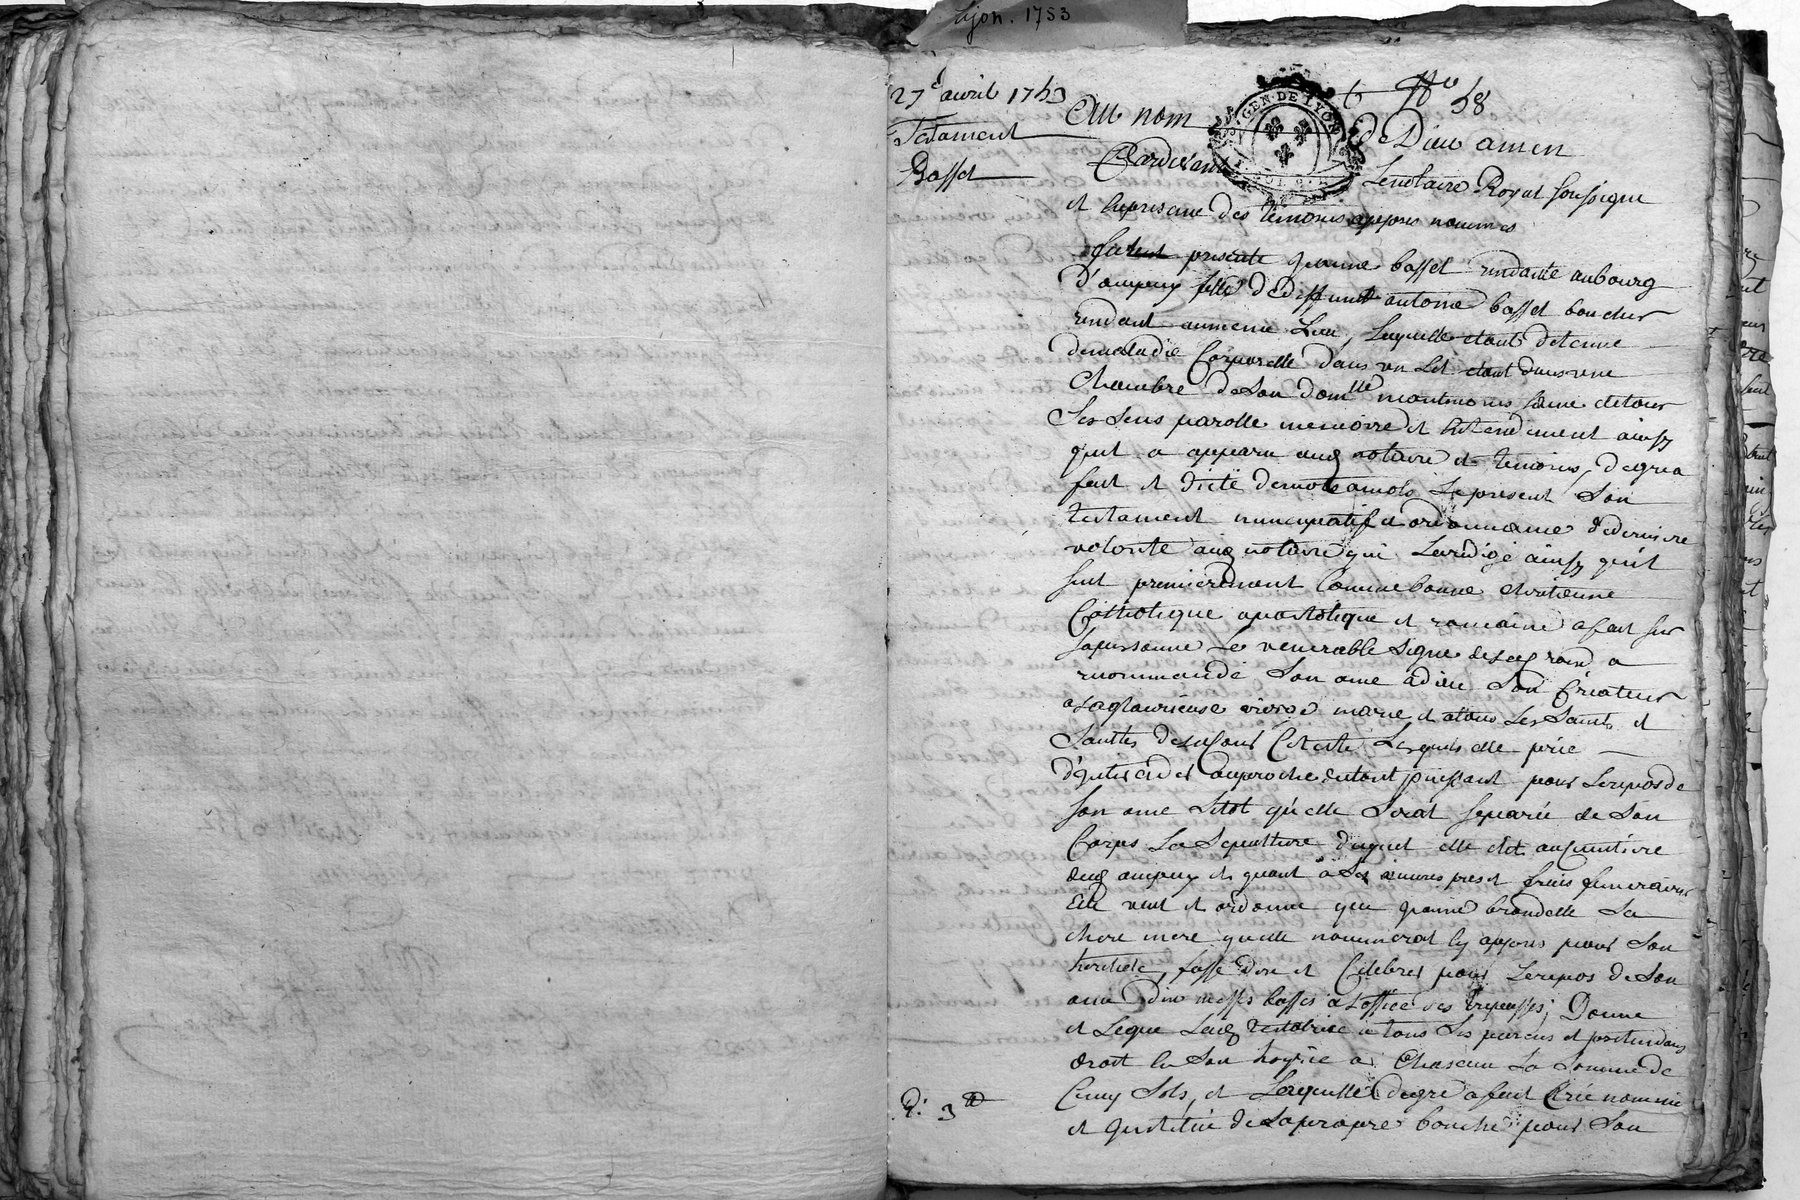 Lyon. 1753
27e avril 1753
Testament
Basset
No 58
GEN. DE LYON
Au nom de Dieu amen
Pardevant Lenotaire Royal soussigné
et en presence des temoins appres nommes
fut presente jeanne basset residante aubourg
D'ampuy fille dedeffunt antoine basset boucher
residant aumeme Lieu, Laquelle etant detenue
demaladie Corporelle dans un Lit etant dans une
Chambre de Son domlle neantmoins saine detous
Ses Sens parolle memoire et entendement ainsy
quil a apparu audt notaire et temoins, degrea
fait et dicté demots amots Le present Son
testament nuncupatif et ordonnance dederniere
volonté audt notaire qui La redigé ainsy quil
suit premierement Comme bonne chretienne
Catholique apostolique et romaine afait sur
sapersonne Le venerable Signe delacroix a
recommandé Son ame adieu Son Créateur
alaglorieuse vierge marie et atous Les Saints et
Saintes delaCour Celeste Lesquels elle prie
d'jnterceder auproche dutout puissant pour Lerepos de
Son ame Sitot qu'elle Serat separée de Son
Corps La Sepulture duquel elle elit auCimetiere
dudt ampuy et quant à Ses œuvres pies et frais funeraires
Elle veut et ordonne que jeanne brondelle Sa
chere mere quelle nommerat Cy appres pour Son
heritiere, fasse dire et Celebrer pour Lerepos de Son
ame dix messes basses à L'office des trepassés; Donne
et Legue Ladt testatrice a tous Ses parens et pretendans
droit en Son hoyrie a Chascun La Somme de
Cinq Sols, et Laquelle degré afait Créé nommé
et jnstitué de Sapropre bouche pour Son
3 tt